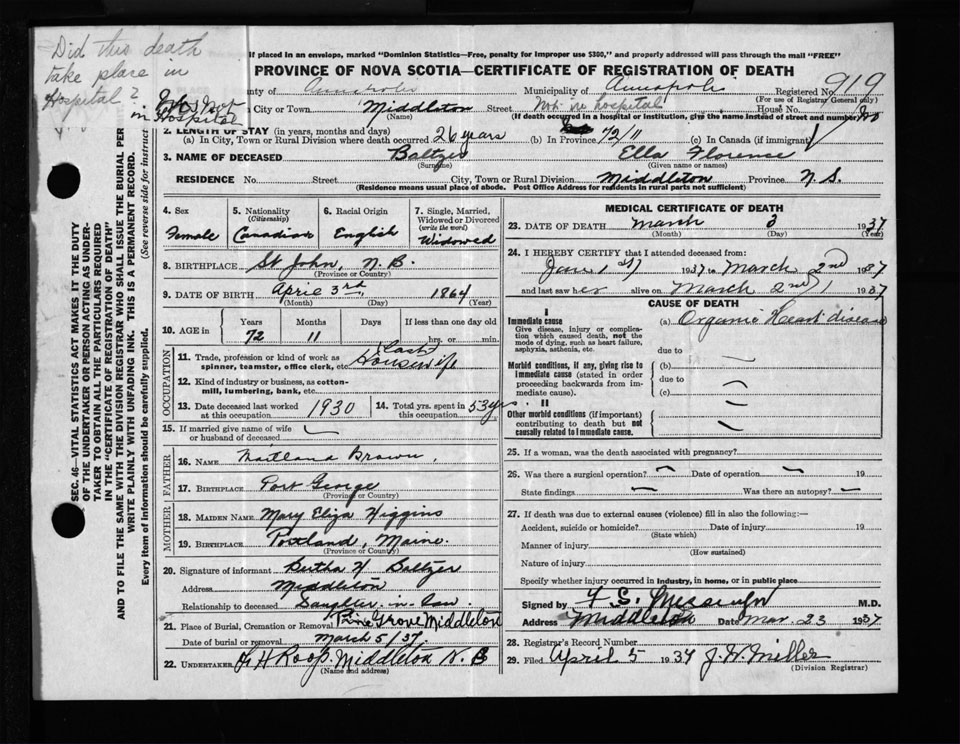 Did this death
take place in
Hospital?
in Hospital
If placed in an envelope, marked "Dominion Statistics—Free, penalty for improper use $300," and properly addressed will pass through the mail "FREE"
PROVINCE OF NOVA SCOTIA—CERTIFICATE OF REGISTRATION OF DEATH
nty of Annapolis Municipality of Annapolis Registered No. 919
(For use of Registrar General only)
City or Town Middleton Street Not in hospital House No.
(Name) (If death occurred in a hospital or institution, give the name instead of street and number) No
2. LENGTH OF STAY (in years, months and days)
(a) In City, Town or Rural Division where death occurred 26 years (b) In Province 72/11 (c) In Canada (if immigrant)
3. NAME OF DECEASED Baltzer Ella Florence
(Surname) (Given name or names)
RESIDENCE No. Street City, Town or Rural Division Middleton Province N.S.
(Residence means usual place of abode. Post Office Address for residents in rural parts not sufficient)
4. Sex
Female
5. Nationality
(Citizenship)
Canadian
6. Racial Origin
English
7. Single, Married,
Widowed or Divorced
(write the word)
Widowed
8. BIRTHPLACE St John, N.B.
(Province or Country)
9. DATE OF BIRTH April 3rd, 1864
(Month) (Day) (Year)
10. AGE in Years Months Days If less than one day old
72 11 hrs. or min.
OCCUPATION
11. Trade, profession or kind of work as
spinner, teamster, office clerk, etc. Housewife
12. Kind of industry or business, as cotton-
mill, lumbering, bank, etc.
13. Date deceased last worked
at this occupation 1930
14. Total yrs. spent in
this occupation 53 yrs.
15. If married give name of wife
or husband of deceased
FATHER
16. Name Maitland Brown,
17. Birthplace Port George
(Province or Country)
MOTHER
18. Maiden Name Mary Eliza Higgins
19. Birthplace Portland, Maine.
(Province or Country)
20. Signature of informant Bertha H Baltzer
Address Middleton
Relationship to deceased Daughter-in-law
21. Place of Burial, Cremation or Removal Pine Grove Middleton
Date of burial or removal March 5/37.
22. Undertaker H Roop. Middleton N.S
(Name and address)
MEDICAL CERTIFICATE OF DEATH
23. DATE OF DEATH March 3 1937
(Month) (Day) (Year)
24. I HEREBY CERTIFY that I attended deceased from:
Jan 1st 1937 to March 2nd 1937
and last saw her alive on March 2nd 1937
CAUSE OF DEATH
I
Immediate cause
Give disease, injury or complica-
tion which caused death, not the
mode of dying, such as heart failure,
asphyxia, asthenia, etc.
(a) Organic Heart disease
due to
Morbid conditions, if any, giving rise to
Immediate cause (stated in order
proceeding backwards from im-
mediate cause).
(b)
due to
(c)
II
Other morbid conditions (if important)
contributing to death but not
causally related to Immediate cause.
25. If a woman, was the death associated with pregnancy?
26. Was there a surgical operation? Date of operation 19
State findings Was there an autopsy?
27. If death was due to external causes (violence) fill in also the following:—
Accident, suicide or homicide? Date of injury 19
(State which)
Manner of injury
(How sustained)
Nature of injury
Specify whether injury occurred in industry, in home, or in public place
Signed by M.D.
Address Middleton Date Mar. 23 1937
28. Registrar's Record Number
29. Filed April 5 1937 J.W. Miller
(Division Registrar)
SEC. 46—VITAL STATISTICS ACT MAKES IT THE DUTY
OF THE UNDERTAKER OR PERSON ACTING AS UNDER-
TAKER TO OBTAIN ALL THE PARTICULARS REQUIRED
IN THE "CERTIFICATE OF REGISTRATION OF DEATH"
AND TO FILE THE SAME WITH THE DIVISION REGISTRAR WHO SHALL ISSUE THE BURIAL PER
WRITE PLAINLY WITH UNFADING INK. THIS IS A PERMANENT RECORD.
Every item of information should be carefully supplied. (See reverse side for instruct